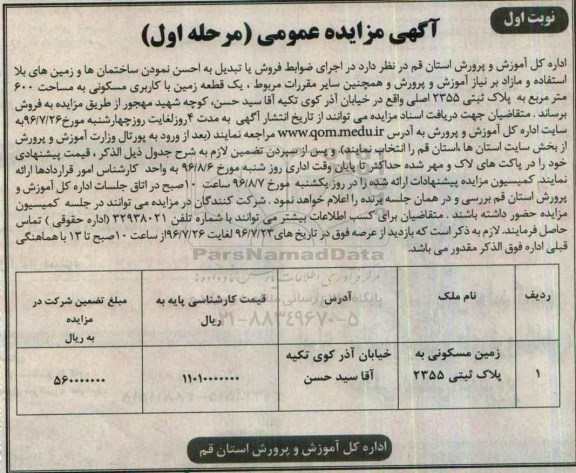 نوبت اول
آگهی مزایده عمومی (مرحله اول)
اداره کل آموزش و پرورش استان قم در نظر دارد در اجرای ضوابط فروش یا تبدیل به احسن نمودن ساختمان ها و زمین های بلا
استفاده و مازاد بر نیاز آموزش و پرورش و همچنین سایر مقررات مربوط ، یک قطعه زمین با کاربری مسکونی به مساحت ۶۰۰
متر مربع به پلاک ثبتی ۲۳۵۵ اصلی واقع در خیابان آذر کوی تکیه آقا سید حسن، کوچه شهید مهجور از طریق مزایده به فروش
برساند . متقاضیان جهت دریافت اسناد مزایده می توانند از تاریخ انتشار آگهی به مدت ۴ روزلغایت روزچهارشنبه مورخ۹۶/۷/۲۶به
سایت اداره کل آموزش و پرورش به آدرس www.qom.medu.ir مراجعه نمایند (بعد از ورود به پورتال وزارت آموزش و پرورش
از بخش سایت استان ها ،استان قم را انتخاب نمایند) و پس از سپردن تضمین لازم به شرح جدول ذیل الذکر ، قیمت پیشنهادی
خود را در پاکت های لاک و مهر شده حداکثر تا پایان وقت اداری روز شنبه مورخ ۹۶/۸/۶ به واحد کارشناس امور قراردادها ارائه
نمایند. کمیسیون مزایده پیشنهادات ارائه شده را در روز یکشنبه مورخ ۹۶/۸/۷ ساعت ۱۰صبح در اتاق جلسات اداره کل آموزش و
پرورش استان قم بررسی و در همان جلسه برنده را اعلام خواهد نمود . شرکت کنندگان در مزایده می توانند در جلسه کمیسیون
مزایده حضور داشته باشند . متقاضیان برای کسب اطلاعات بیشتر می توانند با شماره تلفن ۳۲۹۳۸۰۲۱ (اداره حقوقی ) تماس
حاصل فرمایند. لازم به ذکر است که بازدید از عرصه فوق در تاریخ های ۹۶/۷/۲۳ لغایت ۹۶/۷/۲۶از ساعت ۱۰صبح تا ۱۳ با هماهنگی
قبلی اداره فوق الذکر مقدور می باشد.
ParsNamadData
۰۲۱-۸۸۳۴۹۶۷۰-۵
ردیف نام ملک آدرس قیمت کارشناسی پایه به ریال مبلغ تضمین شرکت در مزایده به ریال
۱ زمین مسکونی به پلاک ثبتی ۲۳۵۵ خیابان آذر کوی تکیه آقا سید حسن ۱۱۰۱۰۰۰۰۰۰۰ ۵۶۰۰۰۰۰۰۰
اداره کل آموزش و پرورش استان قم